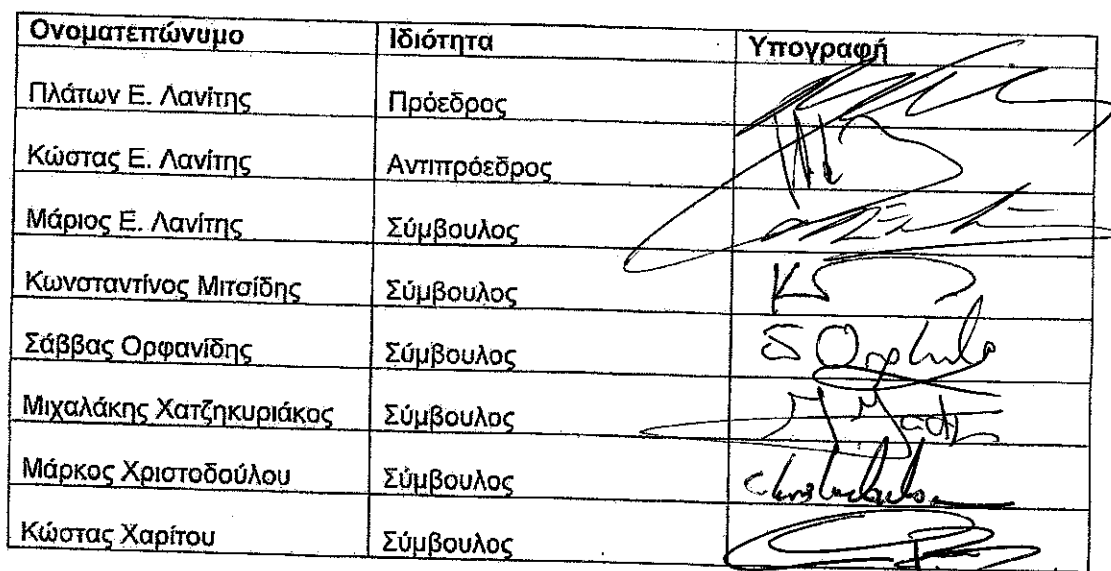 Ονοματεπώνυμο Ιδιότητα Υπογραφή
Πλάτων Ε. Λανίτης Πρόεδρος
Κώστας Ε. Λανίτης Αντιπρόεδρος
Μάριος Ε. Λανίτης Σύμβουλος
Κωνσταντίνος Μιτσίδης Σύμβουλος
Σάββας Ορφανίδης Σύμβουλος
Μιχαλάκης Χατζηκυριάκος Σύμβουλος
Μάρκος Χριστοδούλου Σύμβουλος
Κώστας Χαρίτου Σύμβουλος